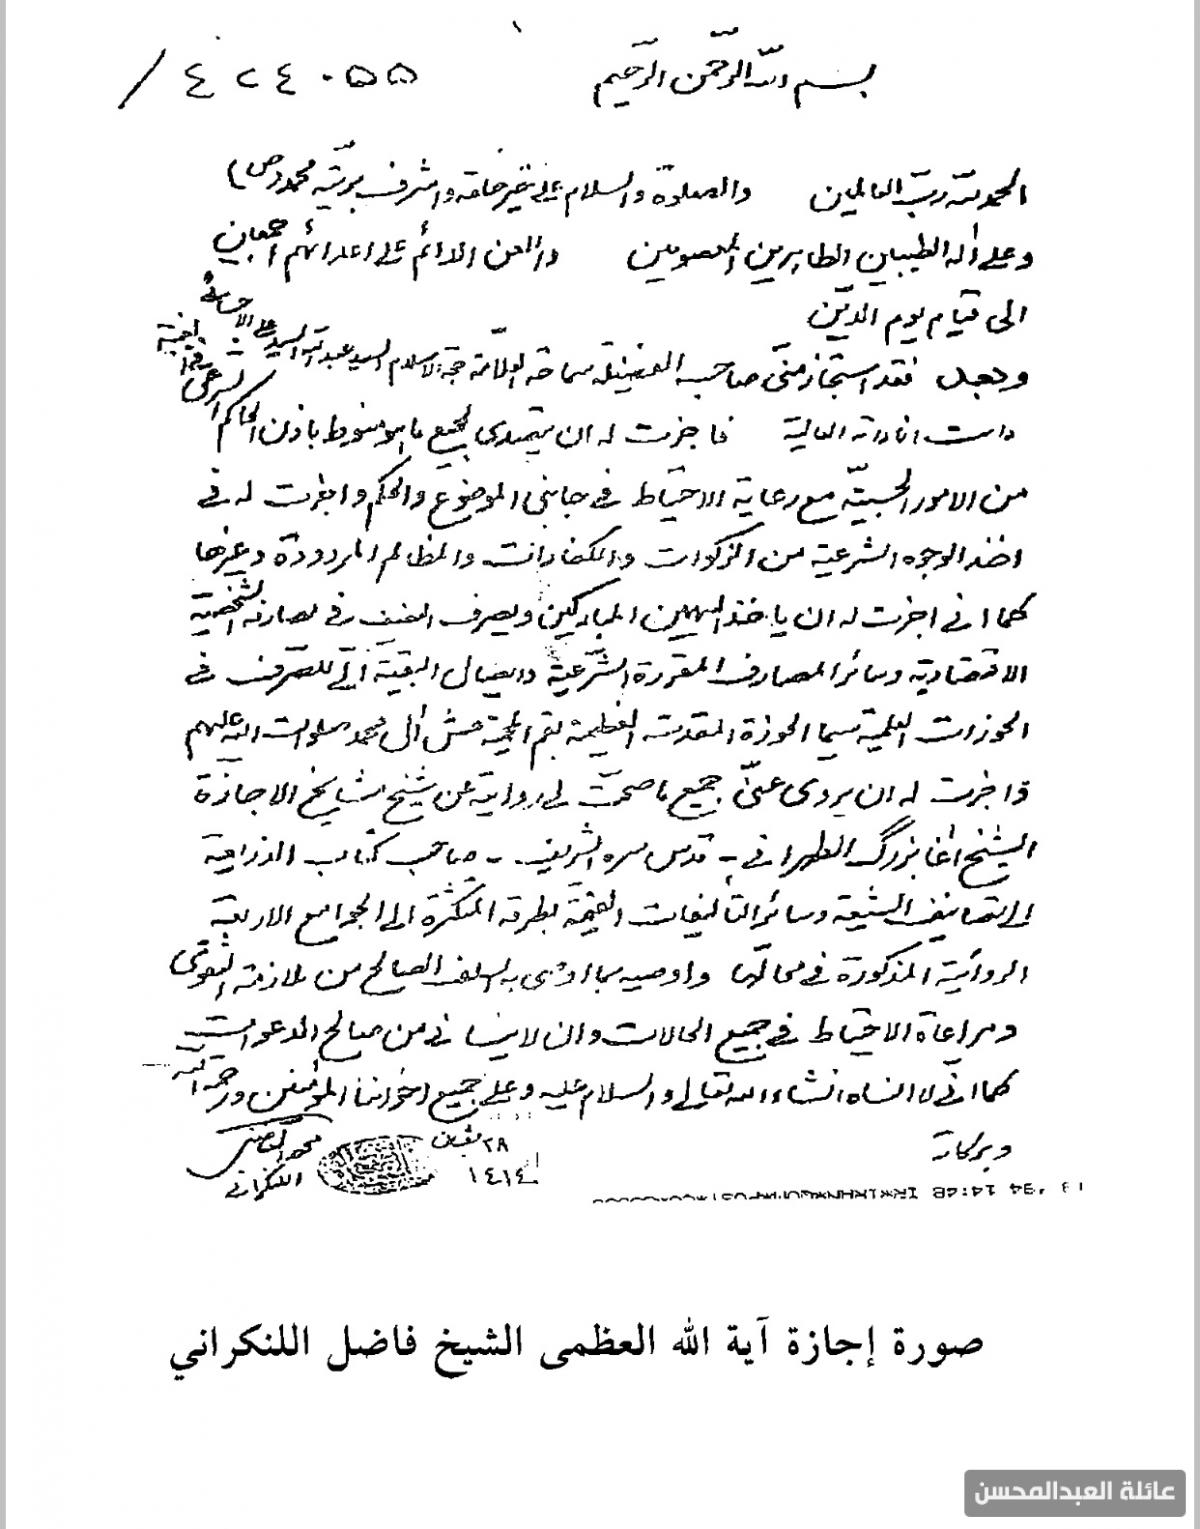 بسم الله الرحمن الرحيم
الحمد لله رب العالمين والصلاة والسلام على خير خلقه واشرف بريته محمد (ص)
وعلى آله الطيبين الطاهرين المعصومين واللعن الدائم على اعدائهم اجمعين
الى قيام يوم الدين
وبعد فقد استجاز منى صاحب الفضيلة سماحة العلامة حجة الاسلام السيد عبدالله السيد على
دامت افاداته العالية فاجزت له ان يتصدى لجميع ما هو منوط باذن الحاكم الشرعى
من الامور الحسبيّة مع رعاية الاحتياط في جانبى الموضوع والحكم واجزت له في
اخذ الوجوه الشرعية من الزكوات والكفارات والمظالم المردودة وغيرها
كما انى اجزت له ان ياخذ السهمين المباركين ويصرف النصف في مصارفه الشخصية
الاقتصادية وسائر المصارف المقررة الشرعية وايصال البقية الىّ للصرف في
الحوزات العلمية سيما الحوزة المقدسة العظيمة بقم المحمية عش آل محمد صلوات الله عليهم
واجزت له ان يروى عنّى جميع ما صحت لى روايته عن شيخ مشايخ الاجازة
الشيخ آغا بزرگ الطهرانى - قدس سره الشريف - صاحب كتاب الذريعة
الى تصانيف الشيعة وسائر التأليفات القيمة بطرقه المتكثرة الى الجوامع الاربعة
الروائية المذكورة في محالّها واوصيه بما اوصى به السلف الصالح من ملازمة التقوى
ومراعاة الاحتياط في جميع الحالات وان لا ينسانى من صالح الدعوات
كما انّى لا انساه انشاء الله تعالى والسلام عليه وعلى جميع اخواننا المؤمنين ورحمة الله
وبركاته
٢٨ شعبان
١٤١٤
محمد الفاضل
اللنكرانى
صورة إجازة آية الله العظمى الشيخ فاضل اللنكراني
عائلة العبدالمحسن